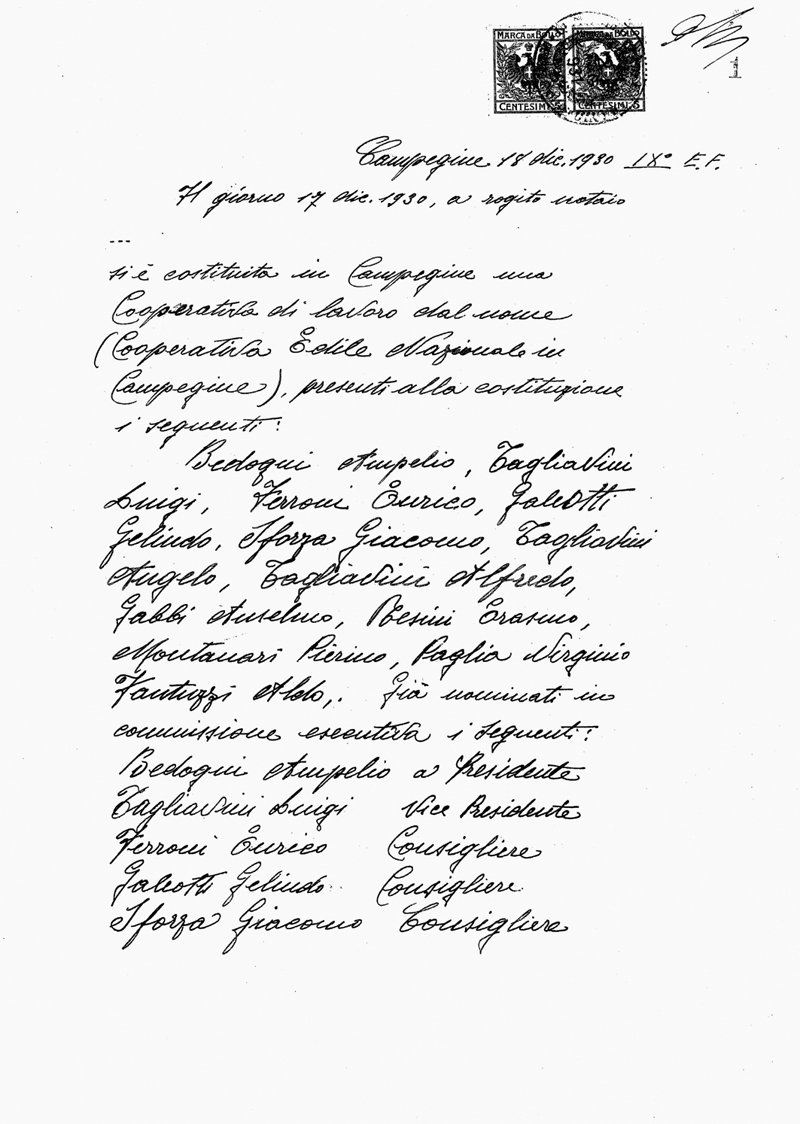 MARCA DA BOLLO MARCA DA BOLLO
CENTESIMI 5 CENTESIMI 5
1
Campegine 18 dic. 1930 IX° E.F.
Il giorno 17 dic. 1930, a rogito notaio
---
si è costituita in Campegine una
Cooperativa di lavoro dal nome
(Cooperativa Edile Nazionale in
Campegine), presenti alla costituzione
i seguenti:
Bedogni Ampelio, Tagliavini
Luigi, Ferroni Enrico, Galeotti
Gelindo, Sforza Giacomo, Tagliavini
Angelo, Tagliavini Alfredo,
Gabbi Anselmo, Resini Erasmo,
Montanari Pierino, Paglia Virginio
Fantuzzi Aldo,. Già nominati in
commissione esecutiva i seguenti:
Bedogni Ampelio a Presidente
Tagliavini Luigi Vice Presidente
Ferroni Enrico Consigliere
Galeotti Gelindo Consigliere
Sforza Giacomo Consigliere